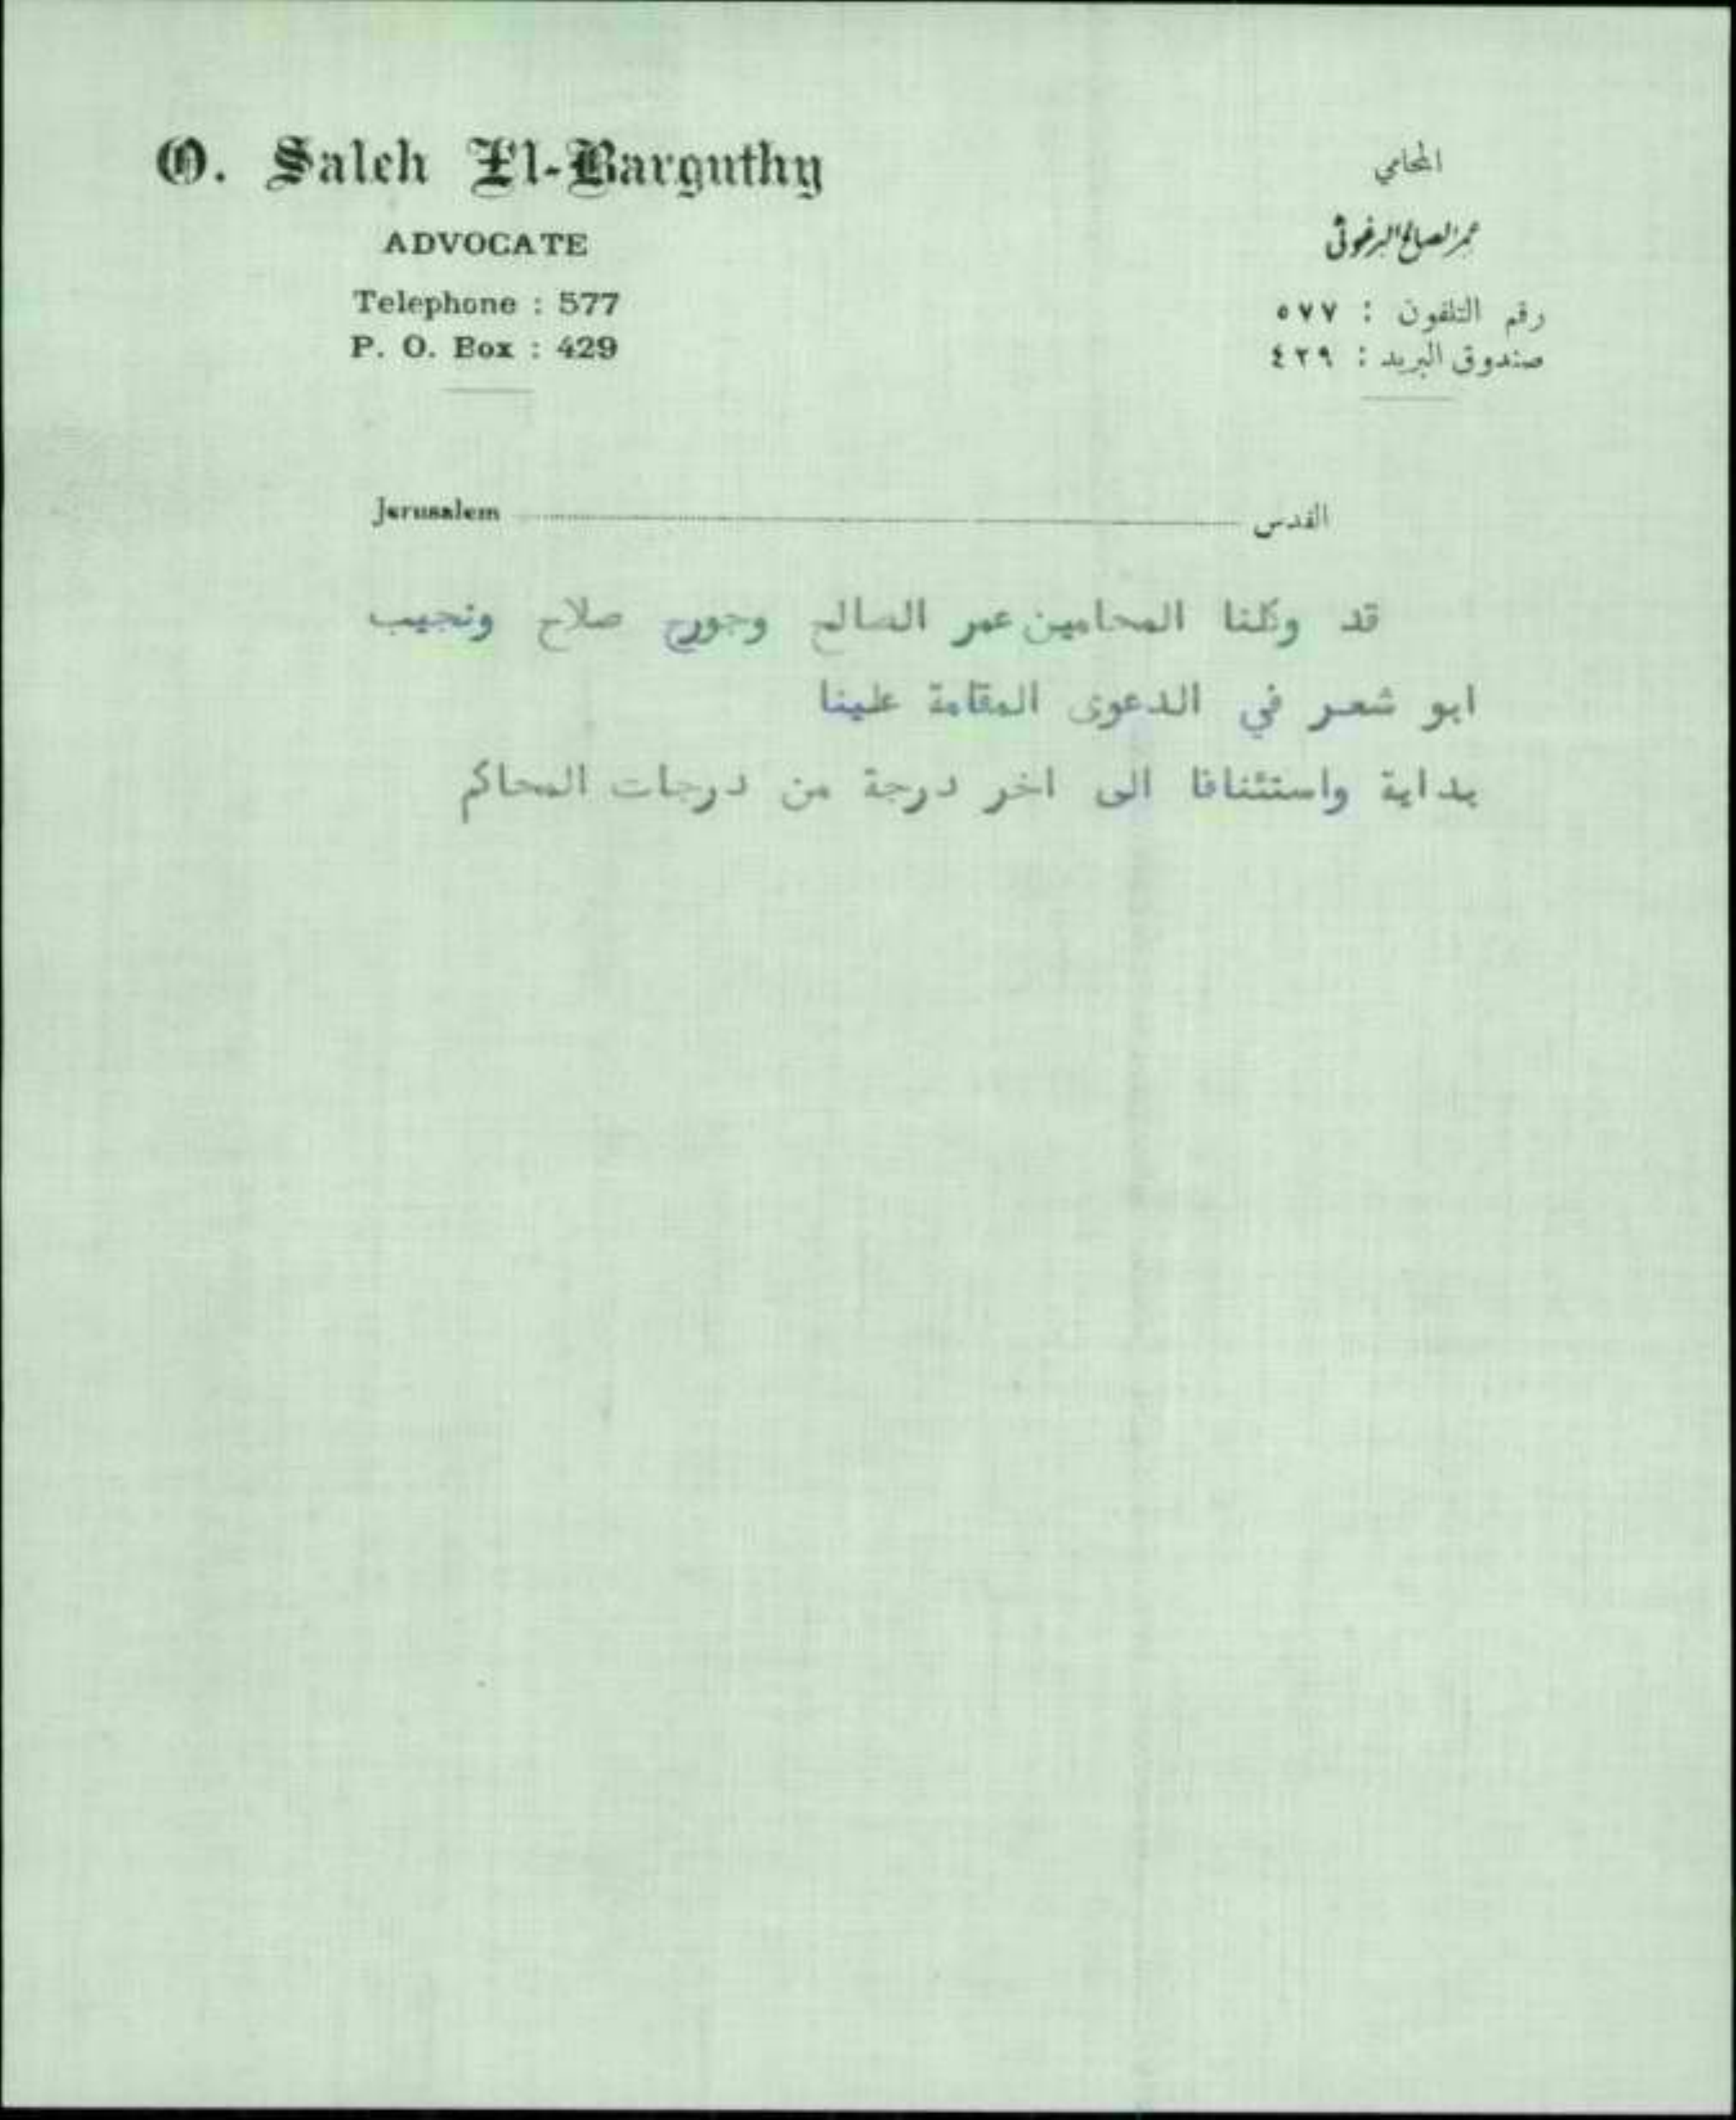 O. Saleh El-Barguthy
ADVOCATE
Telephone : 577
P. O. Box : 429
المحامي
عمر الصالح البرغوثي
رقم التلفون : ٥٧٧
صندوق البريد : ٤٢٩
Jerusalem القدس
قد وكلنا المحامين عمر الصالح وجورج صلاح ونجيب
ابو شعر في الدعوى المقامة علينا
بداية واستئنافا الى اخر درجة من درجات المحاكم